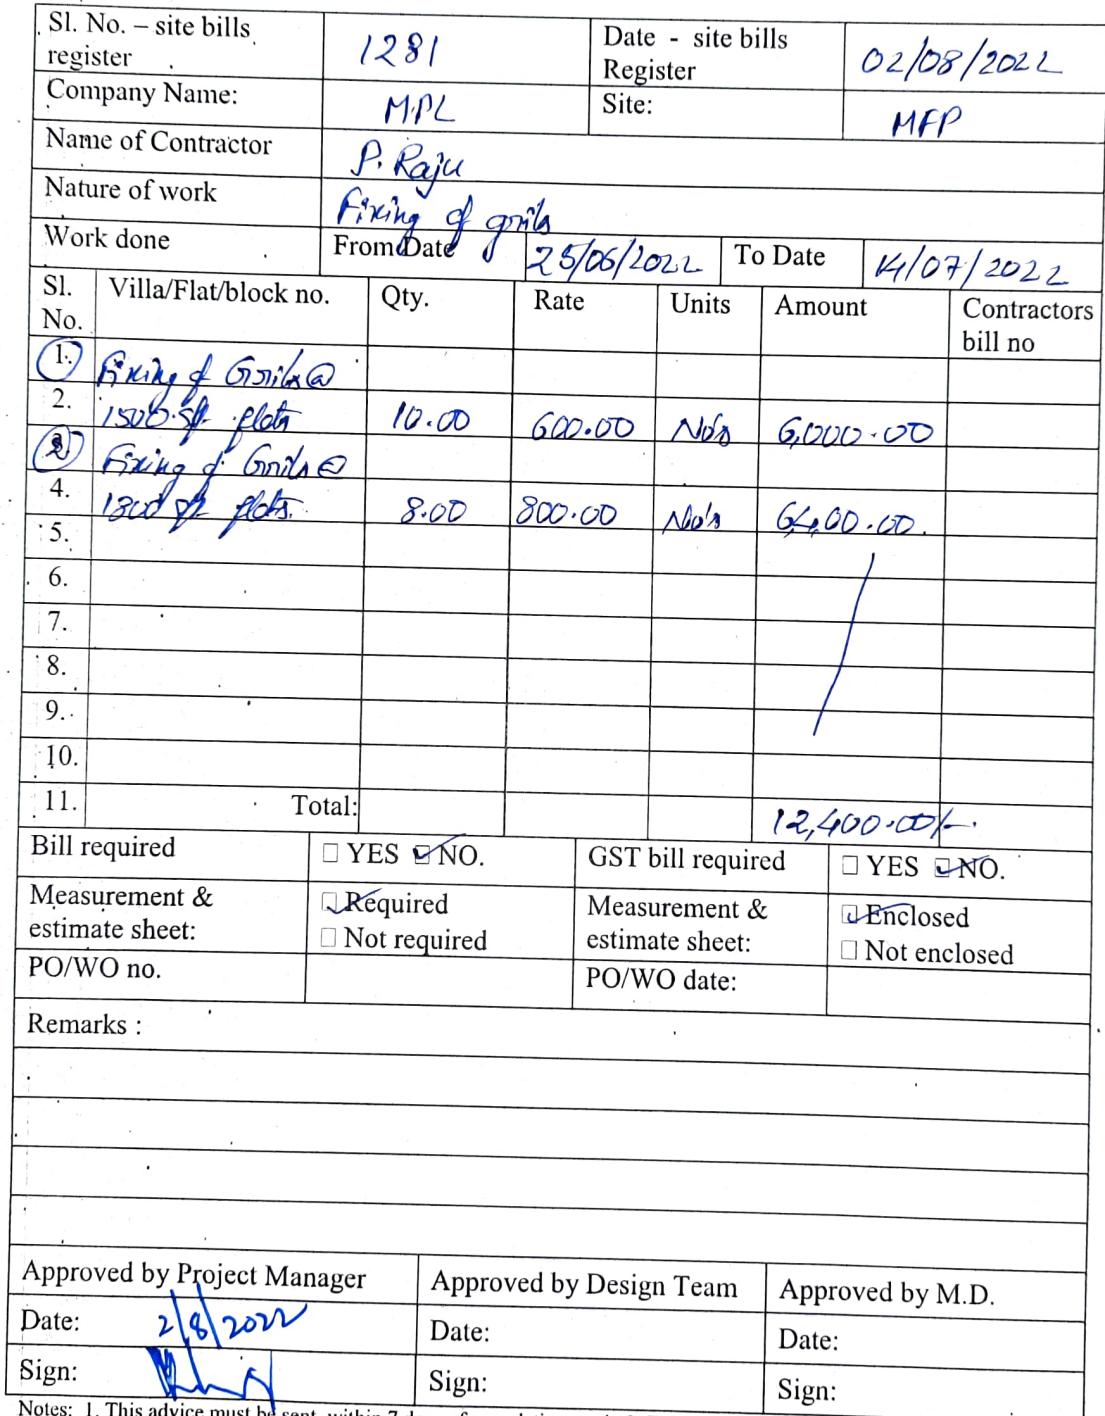 Sl. No. – site bills register 1281 Date - site bills Register 02/08/2022
Company Name: MPL Site: MFP
Name of Contractor P. Raju
Nature of work Fixing of grils
Work done From Date 25/06/2022 To Date 14/07/2022
Sl. No. Villa/Flat/block no. Qty. Rate Units Amount Contractors bill no
1. Fixing of Grils @
2. 1500 sft flats 10.00 600.00 No's 6,000.00
2 Fixing of Grils @
4. 1800 sft flats. 8.00 800.00 No's 6,400.00
5.
6.
7.
8.
9.
10.
11. Total: 12,400.00/-
Bill required □ YES ☑ NO. GST bill required □ YES ☑ NO.
Measurement & estimate sheet: ☑ Required □ Not required Measurement & estimate sheet: ☑ Enclosed □ Not enclosed
PO/WO no. PO/WO date:
Remarks :
Approved by Project Manager Approved by Design Team Approved by M.D.
Date: 2/8/2022 Date: Date:
Sign: Sign: Sign:
Notes: 1. This advice must be sent within 7 days